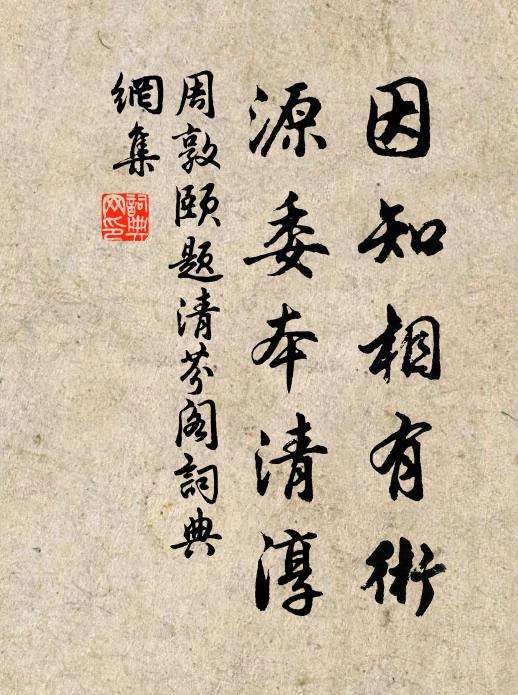 因知相有術
源委本清淳
周敦頤題清芬閣詞典
網集
詞典
网印